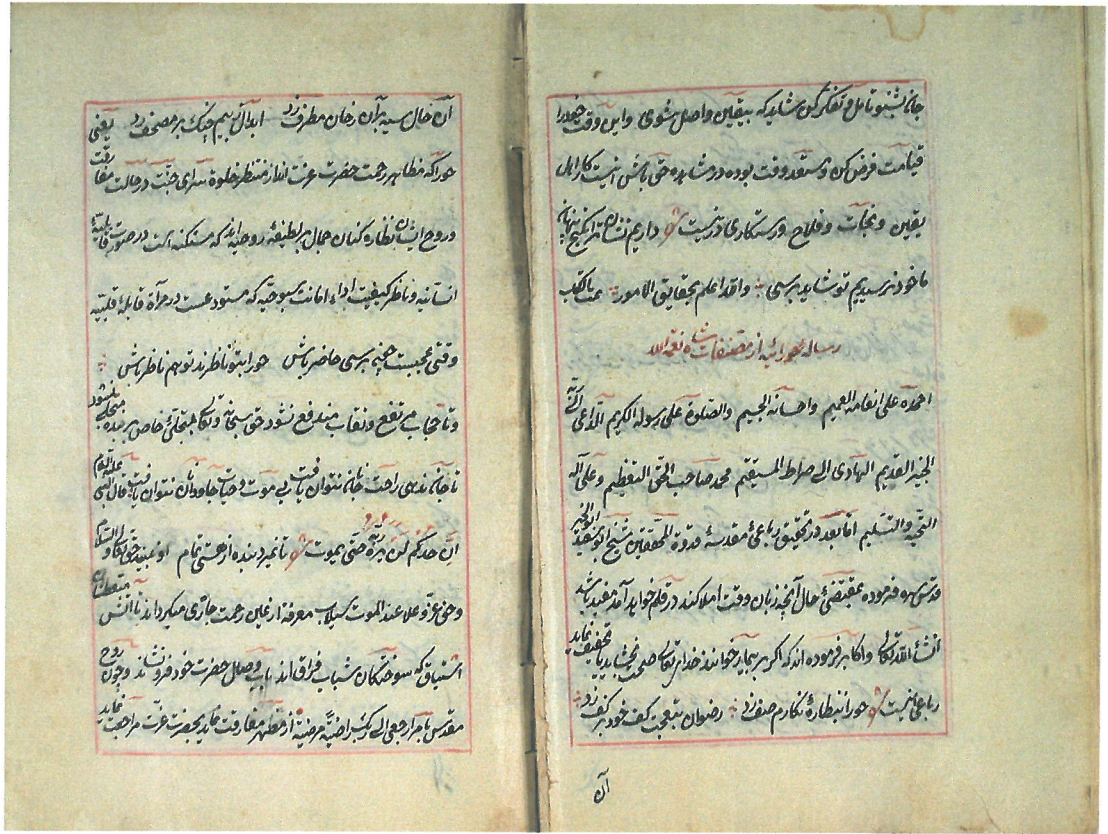 جانا بشنو تامل و تفکر کن شاید که بیقین واصل شوی و این وقت خود را
قیامت فرض کن و مستعد وقت بوده در مشاهده حق باش اینست کار اهل
یقین و نجات و فلاح و رستکاری درینست داریم نشان ترا کنج نهانه
ما خود نرسیدیم تو شاید برسی والله اعلم بحقایق الامور تمت بالکتب
رساله حورائیه از مصنفات شاه نعمة الله
احمده علی انعامه العمیم و احسانه الجسیم والصلوة علی رسوله الکریم الداعی الی
الخیر القدیم الهادی الی صراط المستقیم محمد صاحب الحق التعظیم و علی آله
التحیه والتسلیم اما بعد در تحقیق رباعی مقدسهٔ قدوة المحققین شیخ ابو سعید ابوالخیر
قدس سره فرموده بمقتضی حال آنچه زبان وقت املا کند در قلم خواهد آمد مفید باشد
انشاء الله تعالی و اکابر فرموده اند که اگر بر بیمار خوانند خدای تعالی صحت بخشاید یا تخفیف نماید
رباعی اینست حورا بنظارهٔ نکارم صف زد رضوان بتعجب کف خود بر کف زد
آن
آن خال سیه بر آن رخان مطرف زد ابدال ز بیم چنک بر مصحف زد یعنی
حورا که مظاهر رحمت حضرت عزت اند از منتظر خلوة سرای جنت در حالت مفارقت
و روح ایشان نظاره کنان جمال هر لطیفهٔ روحیه اند که مستکنه است در صورت قابلیهٔ
انسانیه و ناظر کیفیت اداء امانت سبوحیه که مستودعست در مرآة قابلهٔ قلبیه
وقتی عجبست چه برسی حاضر باش حورا بتو ناظرند تو هم ناظر باش
و تا حجاب مرتفع و نقاب مندفع نشود حق سبحانه و تعالی بتجلی خاص بر بنده متجلی نشود
تا جانه ندهی راحت جانه نتوان یافت بی موت و حیات جاودان نتوان یافت قال النبی علیه السلام
ان احدکم لن یری ربه حتی یموت تا نمیرد بنده از هستی تمام او نبیند حق تعالی والسلام
و حق عز و علا عند الموت سیلاب معرفة از غیان رحمت جاری میکرداند تا آتش متعطشان
اشتیاق که سوختکان شباب فراق اند بآب وصال حضرت خود فرو نشاند و چون روح
مقدس بامر ارجعی الی ربک راضیة مرضیة از مظهر مفارقت نماید بحضرت عزت مراجعت نماید